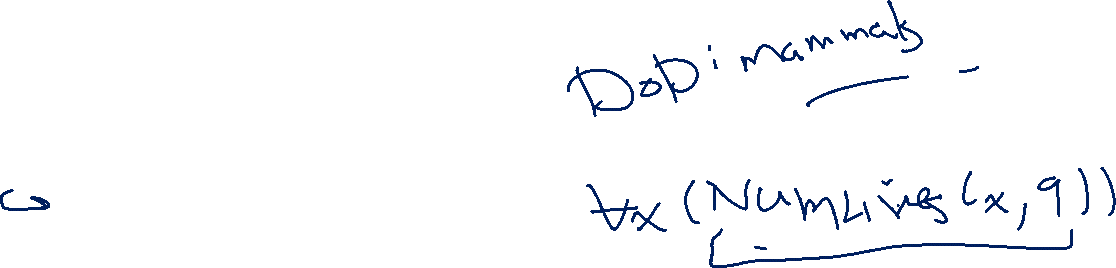 DoD: mammals
∀x (NumLives(x, 9))